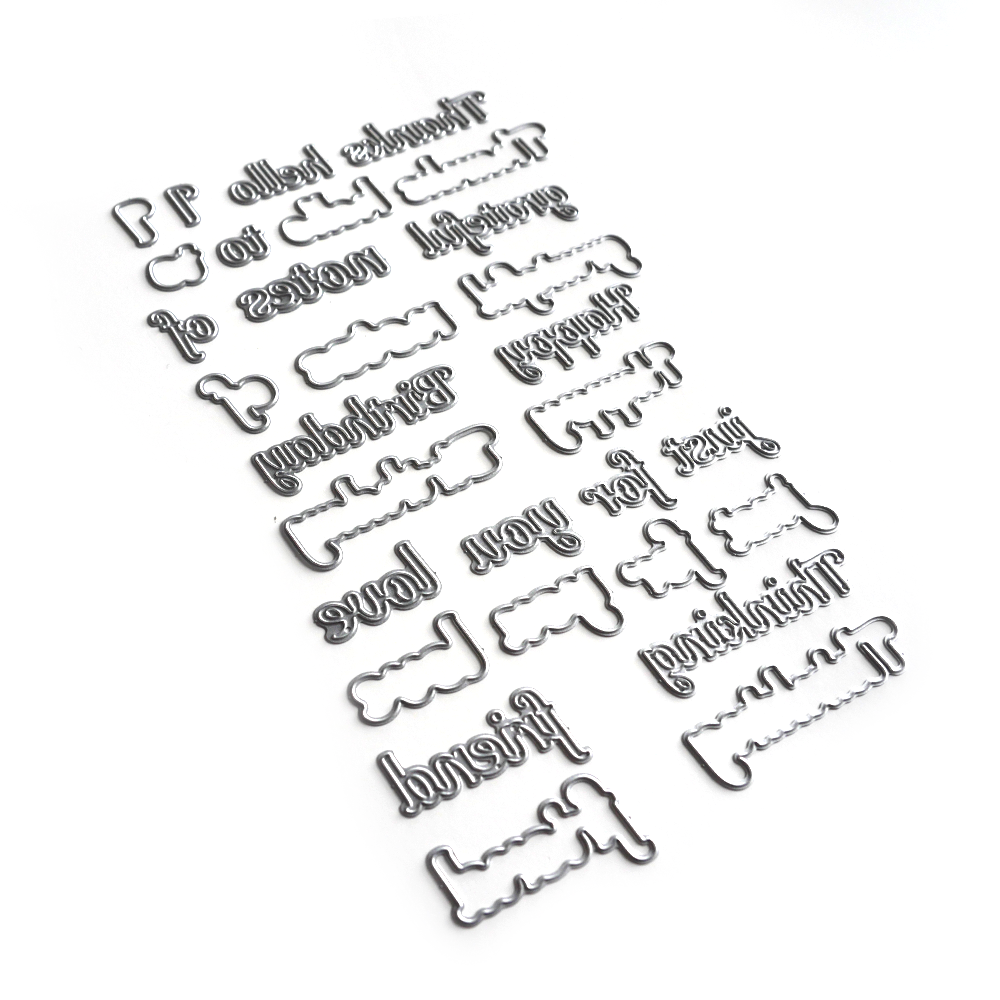 Thanks hello I
to
grateful notes
of
Happy Birthday
just for you love
Thinking friend